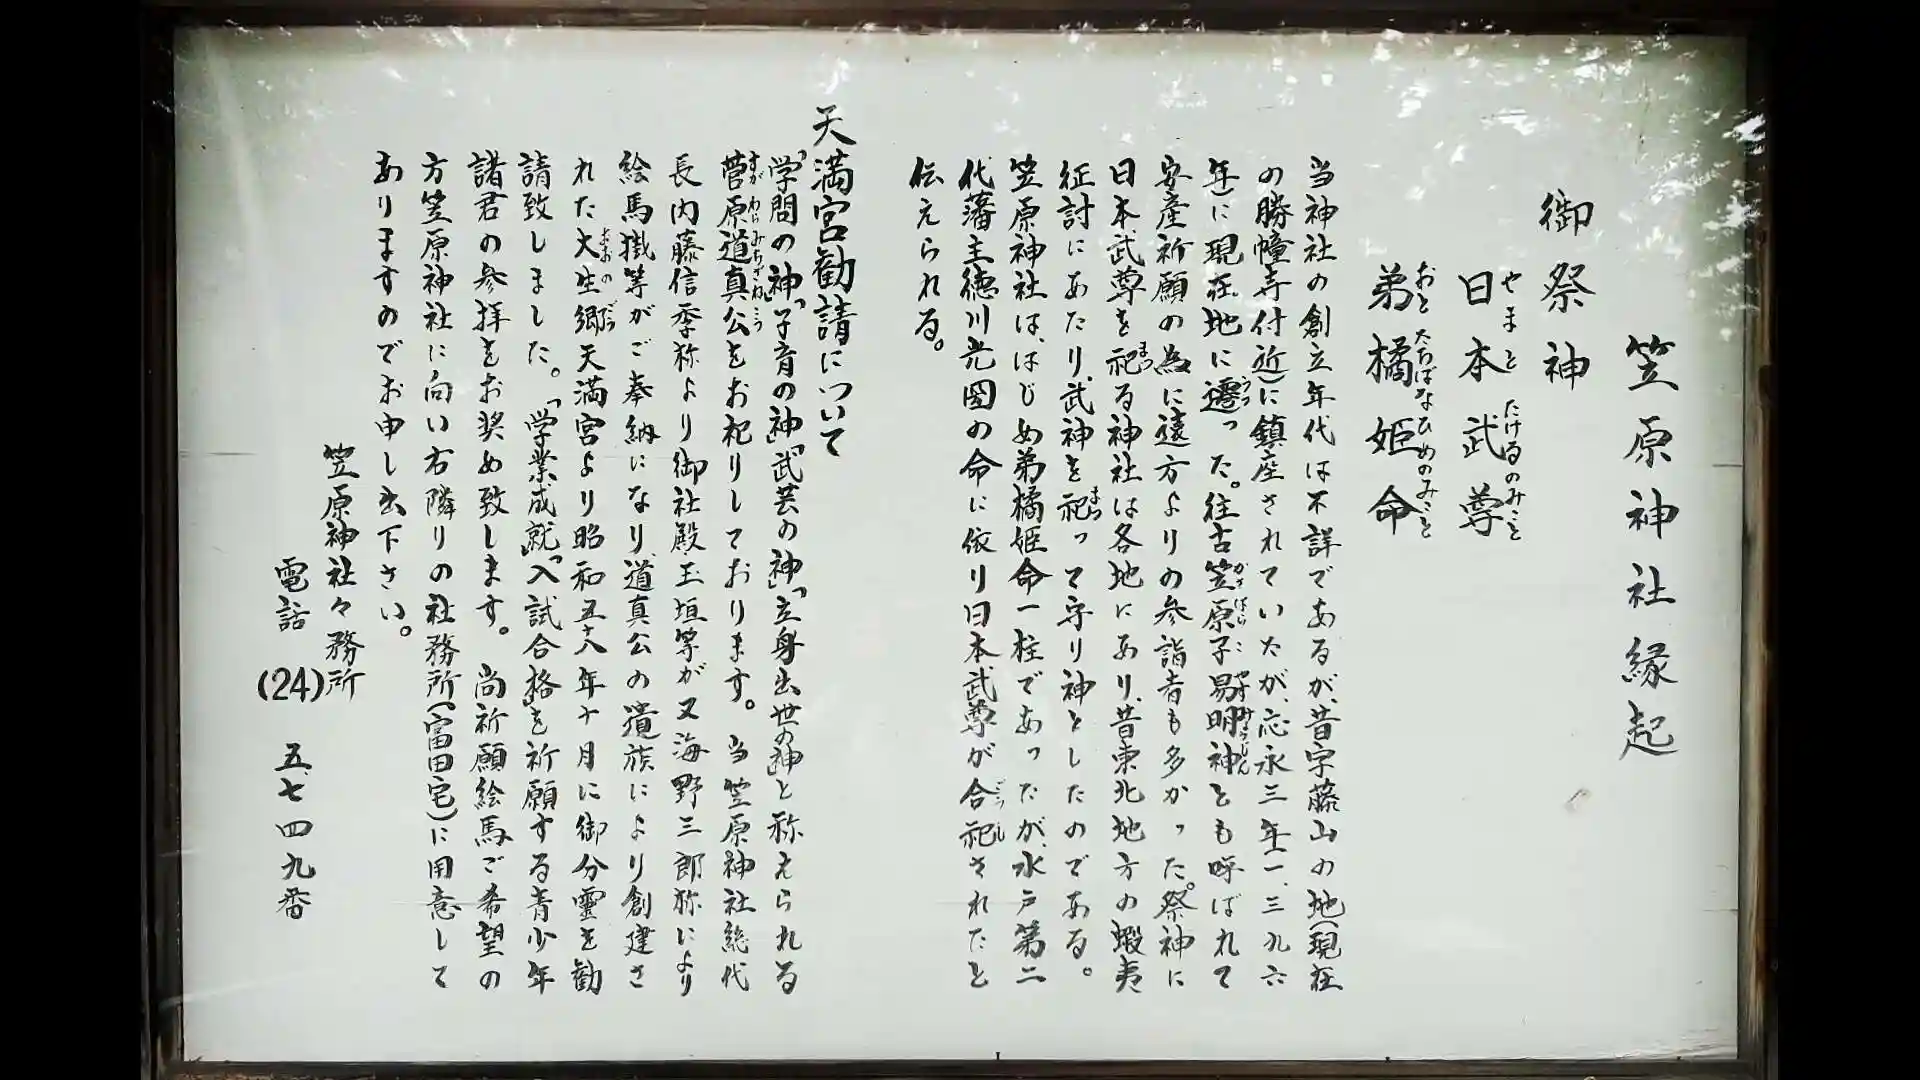 笠原神社縁起
御祭神
日本武尊
やまと たけるのみこと
弟橘姫命
おと たちばなひめのみこと
当神社の創立年代は不詳であるが、昔字藤山の地(現在
の勝幢寺付近)に鎮座されていたが、応永三年(一、三九六
年)に現在地に遷った。往古笠原子易明神とも呼ばれて
安産祈願の為に遠方よりの参詣者も多かった。祭神に
日本武尊を祀る神社は各地にあり、昔東北地方の蝦夷
征討にあたり、武神を祀って守り神としたのである。
笠原神社は、はじめ弟橘姫命一柱であったが、水戸第二
代藩主徳川光圀の命に依り日本武尊が合祀されたと
伝えられる。
天満宮勧請について
「学問の神」「子育の神」「武芸の神」「立身出世の神」と称えられる
菅原道真公をお祀りしております。当笠原神社総代
長内藤信季称より御社殿、玉垣等が又海野三郎称により
絵馬掛等がご奉納になり、道真公の遺族により創建さ
れた大生郷天満宮より昭和五十八年十月に御分霊を勧
請致しました。「学業成就」「入試合格」を祈願する青少年
諸君の参拝をお奨め致します。尚祈願絵馬ご希望の
方笠原神社に向い右隣りの社務所(富田宅)に用意して
ありますのでお申し出下さい。
笠原神社々務所
電話(24)五、七四九番